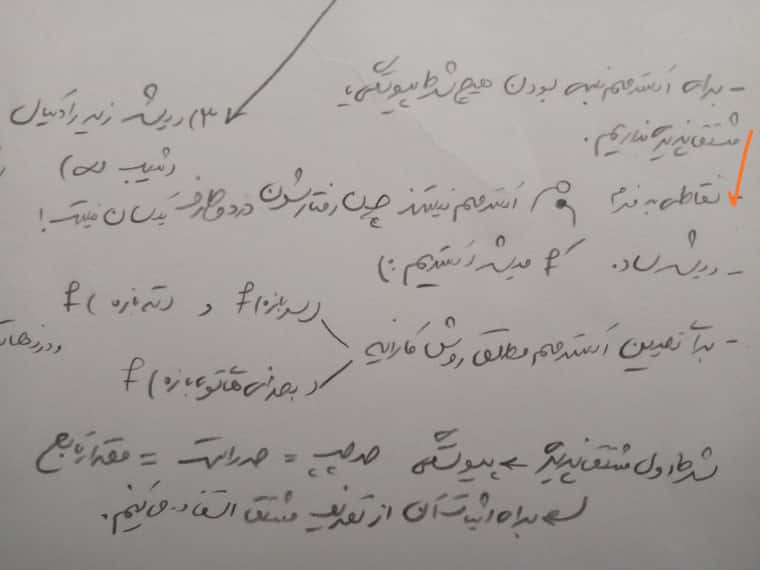 - برای اکسترمم نسبی بودن هیچ شرط پیوستگی یا
مشتق پذیری نداریم.
۳) ریشه زیر رادیکال
(شیب ∞)
- نقاطی به فرم اکسترمم نیستند چون رفتارشون در دو طرف یکسان نیست!
- ریشه ساده f' میشه اکستریم :)
- برای تعیین اکسترمم مطلق روش کارانه
f(سر بازه) و f(ته بازه)
f(بحرانی های تو بازه)
شرط اول مشتق پذیری ← پیوستگی حد چپ = حد راست = مقدار تابع
برای اثبات آن از تعریف مشتق استفاده میکنیم.